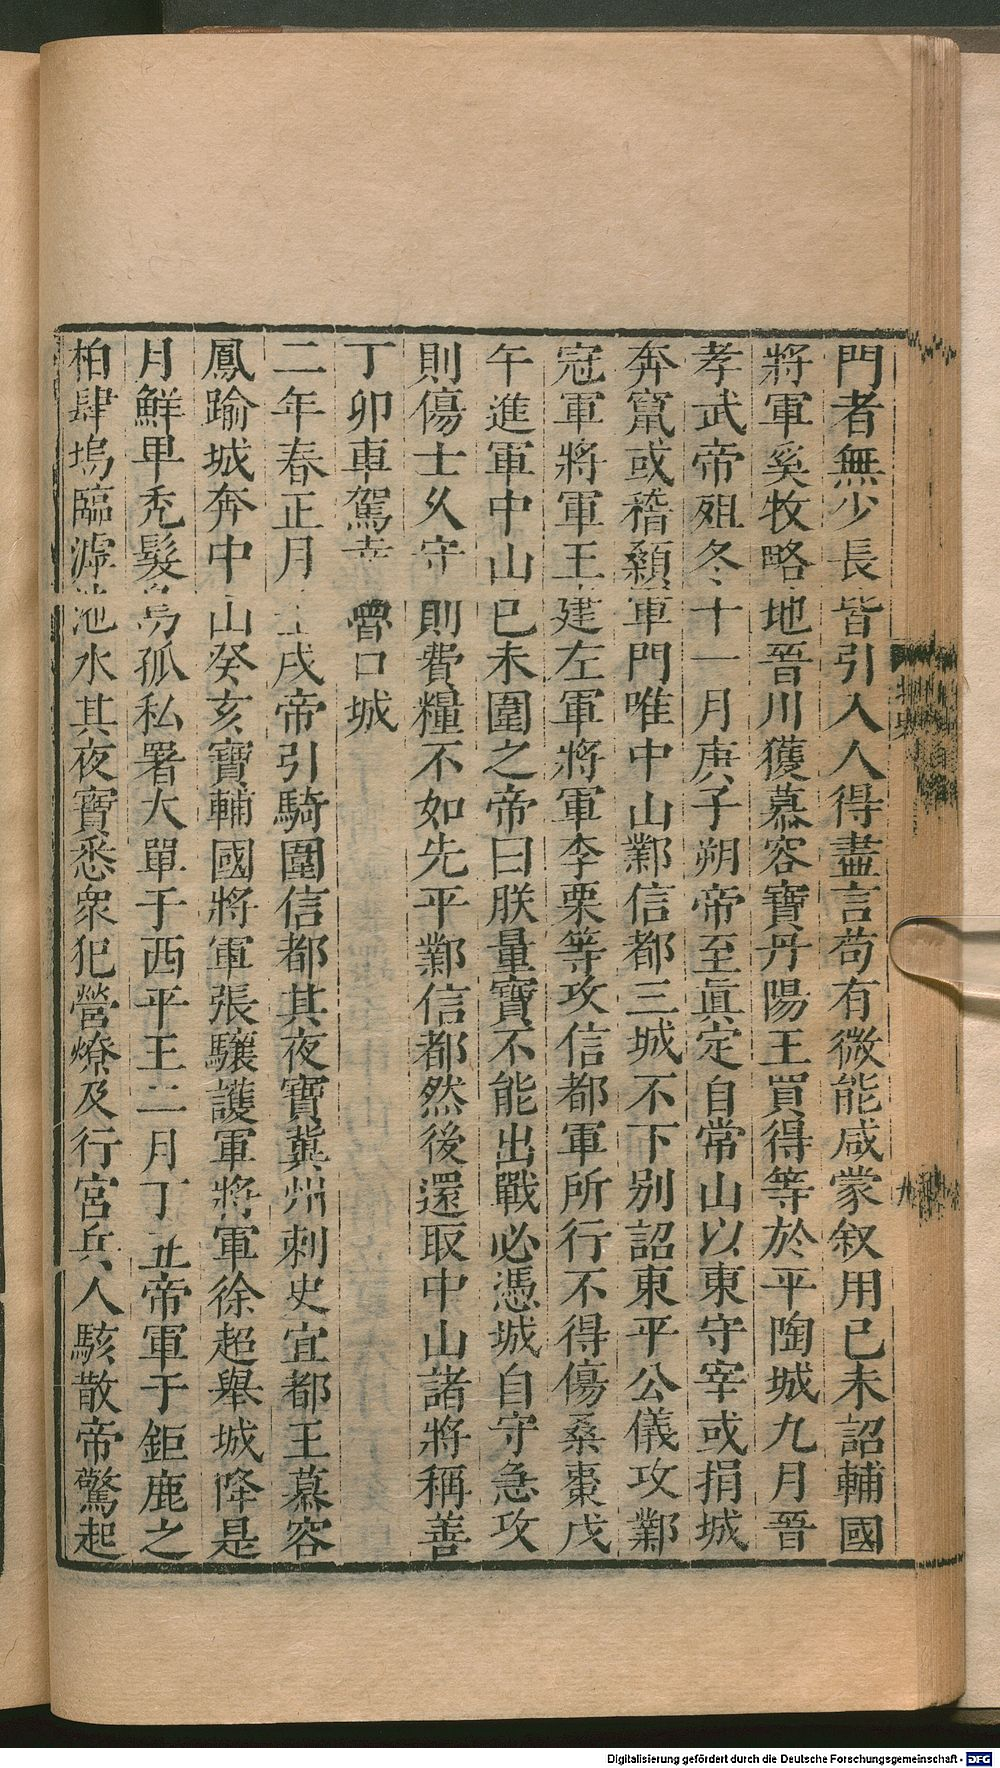 門者無少長皆引入人得盡言苟有微能咸蒙叙用已未詔輔國
將軍奚牧略地晉川獲慕容寶丹陽王買得等於平陶城九月晉
孝武帝殂冬十一月庚子朔帝至眞定自常山以東守宰或捐城
奔竄或稽顙軍門唯中山鄴信都三城不下别詔東平公儀攻鄴
冠軍將軍王建左軍將軍李栗等攻信都軍所行不得傷桑棗戊
午進軍中山已未圍之帝曰朕量寶不能出戰必憑城自守急攻
則傷士久守則費糧不如先平鄴信都然後還取中山諸將稱善
丁卯車駕幸魯口城
二年春正月壬戌帝引騎圍信都其夜寶冀州刺史宜都王慕容
鳳踰城奔中山癸亥寶輔國將軍張驤護軍將軍徐超舉城降是
月鮮卑禿髮烏孤私署大單于西平王二月丁丑帝軍于鉅鹿之
柏肆塢臨滹沱水其夜寶悉衆犯營燎及行宮兵人駭散帝驚起
九
Digitalisierung gefördert durch die Deutsche Forschungsgemeinschaft - DFG